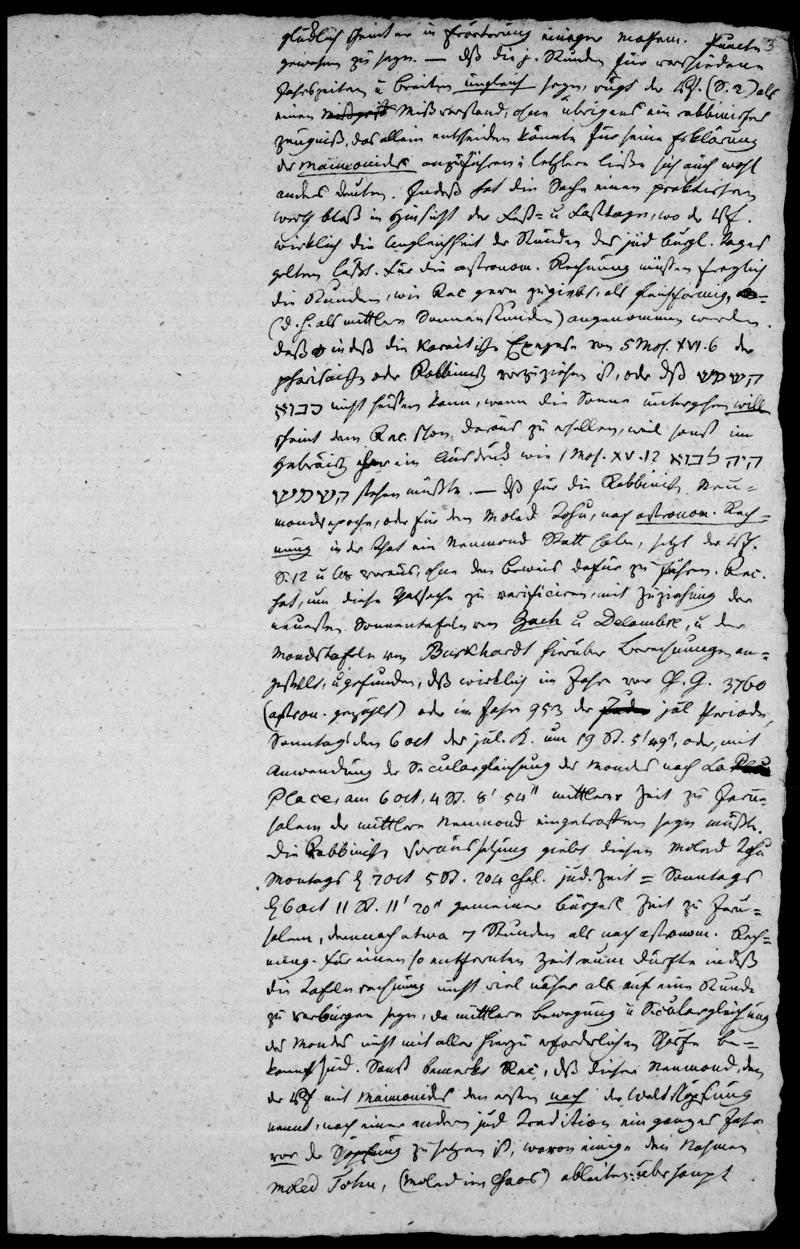 glücklich scheint er in Erörterung einiger mathem. Puncte 3
gewesen zu seyn. — daß die j. Stunden für verschiedene
Jahrszeiten u Breiten ungleich seyn, rügt der Vf. (S. 2) als
einen Mißverstand, ohne übrigens ein rabbinisches
Zeugniß, das allein entscheiden könnte für seine Erklärung
des Maimonides anzuführen; letztere ließe sich auch wohl
anders deuten. Indeß hat die Sache einen praktischen
Werth bloß in Hinsicht der Fest- u Fasttage, wo der Vf.
wirklich die Ungleichheit der Stunden des jüd bürgl. Tages
gelten läßt. Für die astronom. Rechnung müssen freylich
die Stunden, wie Rec gern zugiebt, als gleichförmig,
(d. h. als mittlere Sonnenstunden) angenommen werden.
daß indeß die Karaitische Exegese von 5 Mos. XVI. 6 der
pharisäische oder Rabbinisch vorzuziehen ist, oder daß השמש
כבוא nicht heißen kann, wenn die Sonne untergehen will
scheint dem Rec. schon daraus zu erhellen, weil sonst im
Hebräisch ein Ausdruck wie 1 Mos. XV. 12 היה לבוא
השמש stehen müßte. — daß für die Rabbinisch. Neu-
mondsepoche, oder für den Molad Tohu, nach astronom. Rech-
nung in der That ein Neumond Statt habe, setzt der Vf.
S. 12 u voraus, ohne den Beweis dafür zu führen. Rec.
hat, um diese Thatsache zu verificiren, mit Zuziehung der
neuesten Sonnentafeln von Zach u Delambre, u der
Mondstafeln von Burkhardt hierüber Berechnungen an-
gestellt, u gefunden, daß wirklich im Jahre vor Ch. G. 3760
(astron. gezählt) oder im Jahr 953 der jul Periode,
Sonntags den 6 oct des jul. K. um 19 St. 5' 49", oder, mit
Anwendung der Seculargleichung des Mondes nach La
Place, am 6 oct, 4 St. 8' 54" mittlerer Zeit zu Jeru-
salem der mittlere Neumond eingetroffen seyn müßte.
Die Rabbinische Voraussetzung giebt diesen Molad Tohu
Montags d 7 oct 5 St. 204 Chel. jüd. Zeit = Sonntags
d 6 oct 11 St. 11' 20" gemeiner bürgerl Zeit zu Jeru-
salem, demnach etwa 7 Stunden als nach astronom. Rech-
nung. Für einen so entfernten Zeitraum dürfte indeß
die Tafelnrechnung nicht viel näher als auf eine Stunde
zu verbürgen seyn, da mittlere Bewegung u Seculargleichung
des Mondes nicht mit aller hierzu erforderlichen Schärfe be-
kannt sind. Sonst bemerkt Rec, daß dieser Neumond, den
der Vf mit Maimonides den ersten nach der Weltschöpfung
nennt, nach einer andern jüd Tradition ein ganzes Jahr
vor der Schöpfung zu setzen ist, wovon einige den Nahmen
Moled Tohu, (Moled im Chaos) ableiten. überhaupt